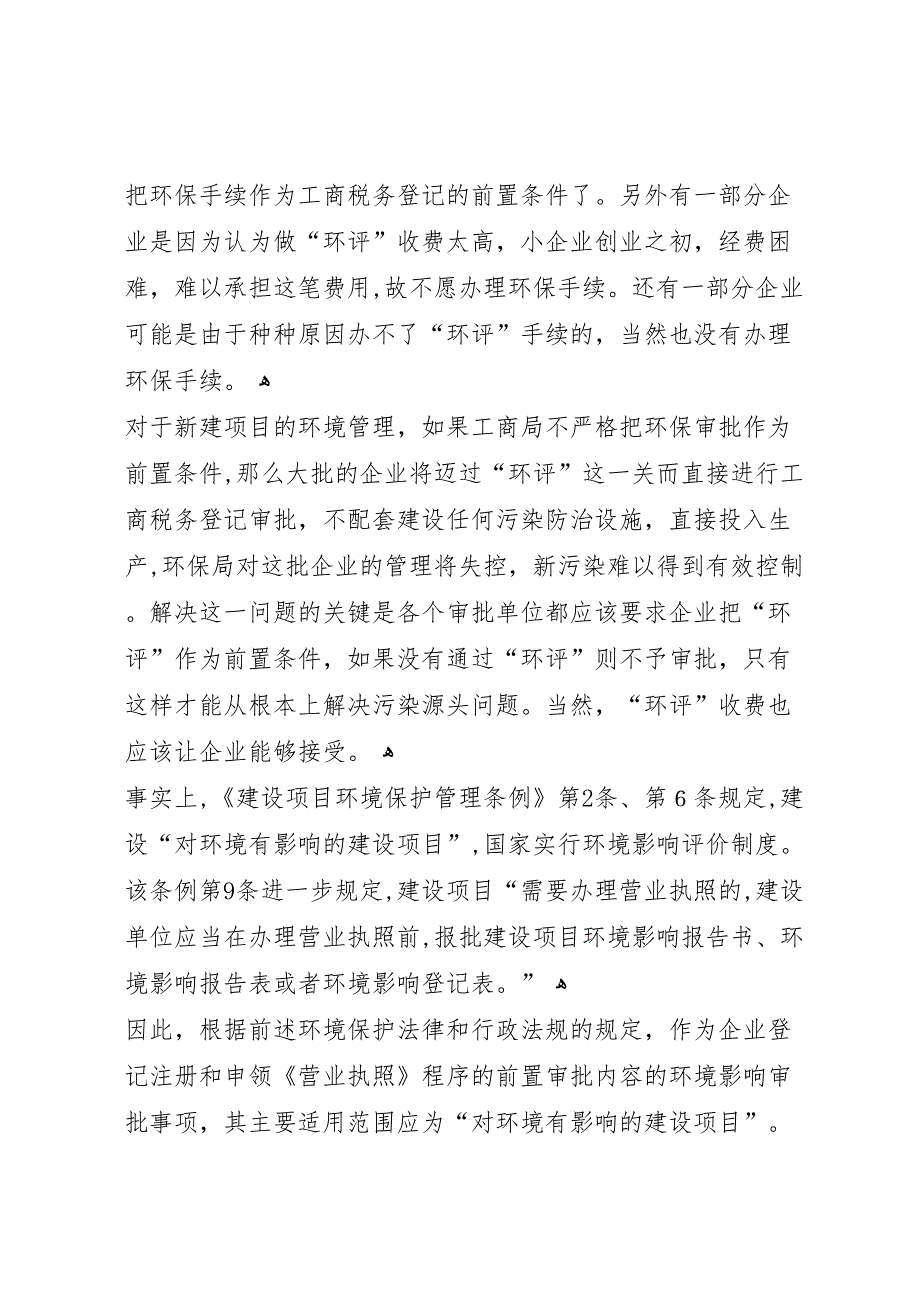 把环保手续作为工商税务登记的前置条件了。另外有一部分企
业是因为认为做“环评”收费太高，小企业创业之初，经费困
难，难以承担这笔费用,故不愿办理环保手续。还有一部分企业
可能是由于种种原因办不了“环评”手续的，当然也没有办理
环保手续。 ﻫ
对于新建项目的环境管理，如果工商局不严格把环保审批作为
前置条件,那么大批的企业将迈过“环评”这一关而直接进行工
商税务登记审批，不配套建设任何污染防治设施，直接投入生
产,环保局对这批企业的管理将失控，新污染难以得到有效控制
。解决这一问题的关键是各个审批单位都应该要求企业把“环
评”作为前置条件，如果没有通过“环评”则不予审批，只有
这样才能从根本上解决污染源头问题。当然，“环评”收费也
应该让企业能够接受。 ﻫ
事实上,《建设项目环境保护管理条例》第2条、第６条规定,建
设“对环境有影响的建设项目”,国家实行环境影响评价制度。
该条例第9条进一步规定,建设项目“需要办理营业执照的,建设
单位应当在办理营业执照前,报批建设项目环境影响报告书、环
境影响报告表或者环境影响登记表。” ﻫ
因此，根据前述环境保护法律和行政法规的规定，作为企业登
记注册和申领《营业执照》程序的前置审批内容的环境影响审
批事项，其主要适用范围应为“对环境有影响的建设项目”。